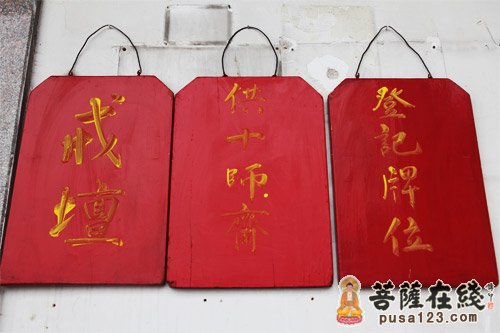 戒壇
供十師齋
登記牌位
菩薩在綫
pusa123.com